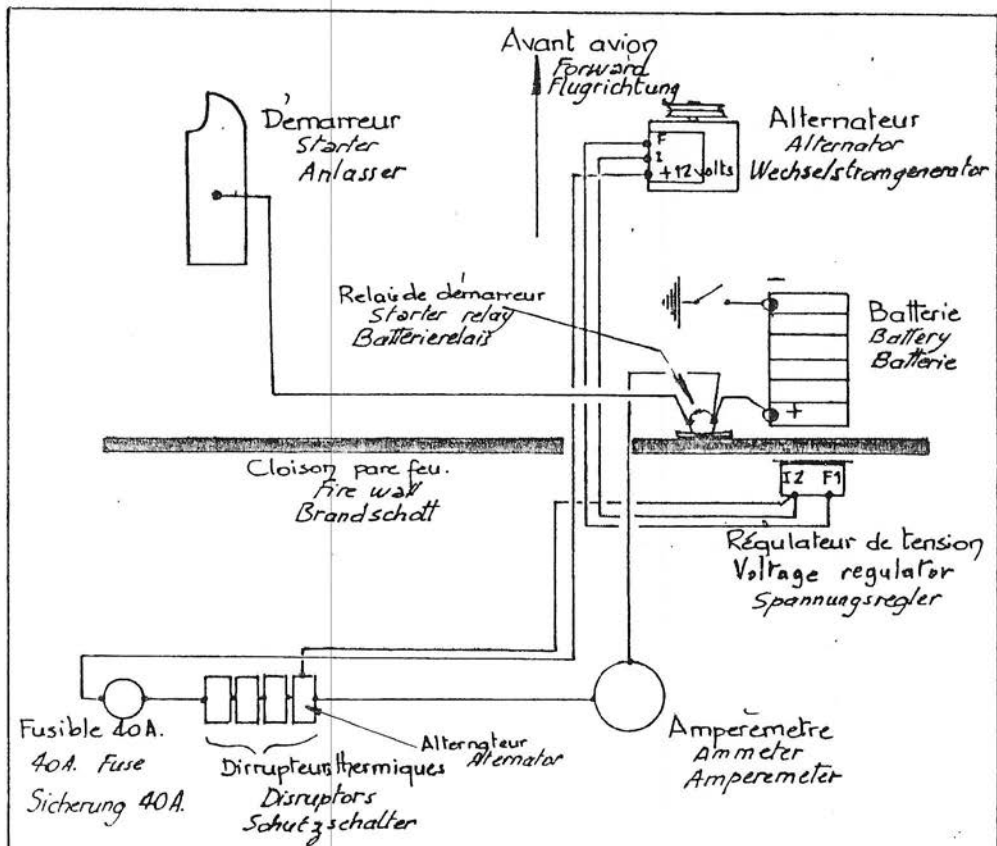 Avant avion
Forward
Flugrichtung
Démarreur
Starter
Anlasser
F
I
+ 12 volts
Alternateur
Alternator
Wechselstromgenerator
Relais de démarreur
Starter relay
Batterierelais
-
+
Batterie
Battery
Batterie
Cloison pare feu.
Fire wall
Brandschott
I2 F1
Régulateur de tension
Voltage regulator
Spannungsregler
Fusible 40A.
40A. Fuse
Sicherung 40A.
Alternateur
Aternator
Dirrupteurs thermiques
Disruptors
Schutzschalter
Ampèremètre
Ammeter
Amperemeter